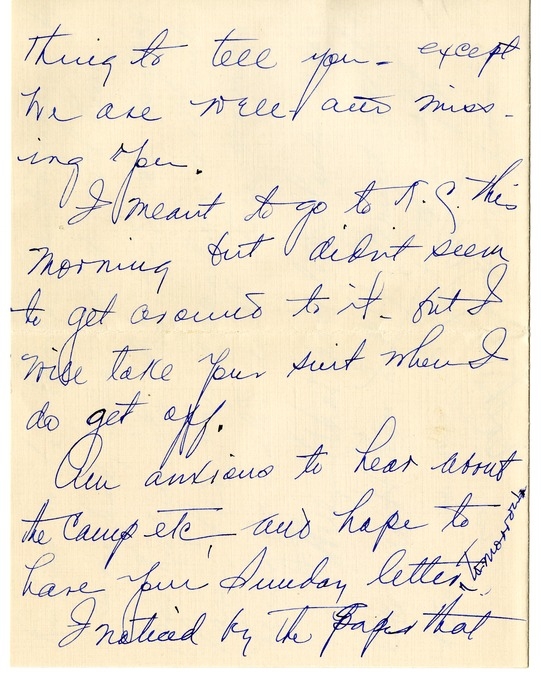 thing to tell you - except
we are well and miss-
ing you.
I meant to go to K.C. this
morning but didn't seem
to get around to it - but I
will take your suit when I
do get off.
Am anxious to hear about
the camp etc, and hope to
have your Sunday letter tomorrow.
I noticed by the paper that